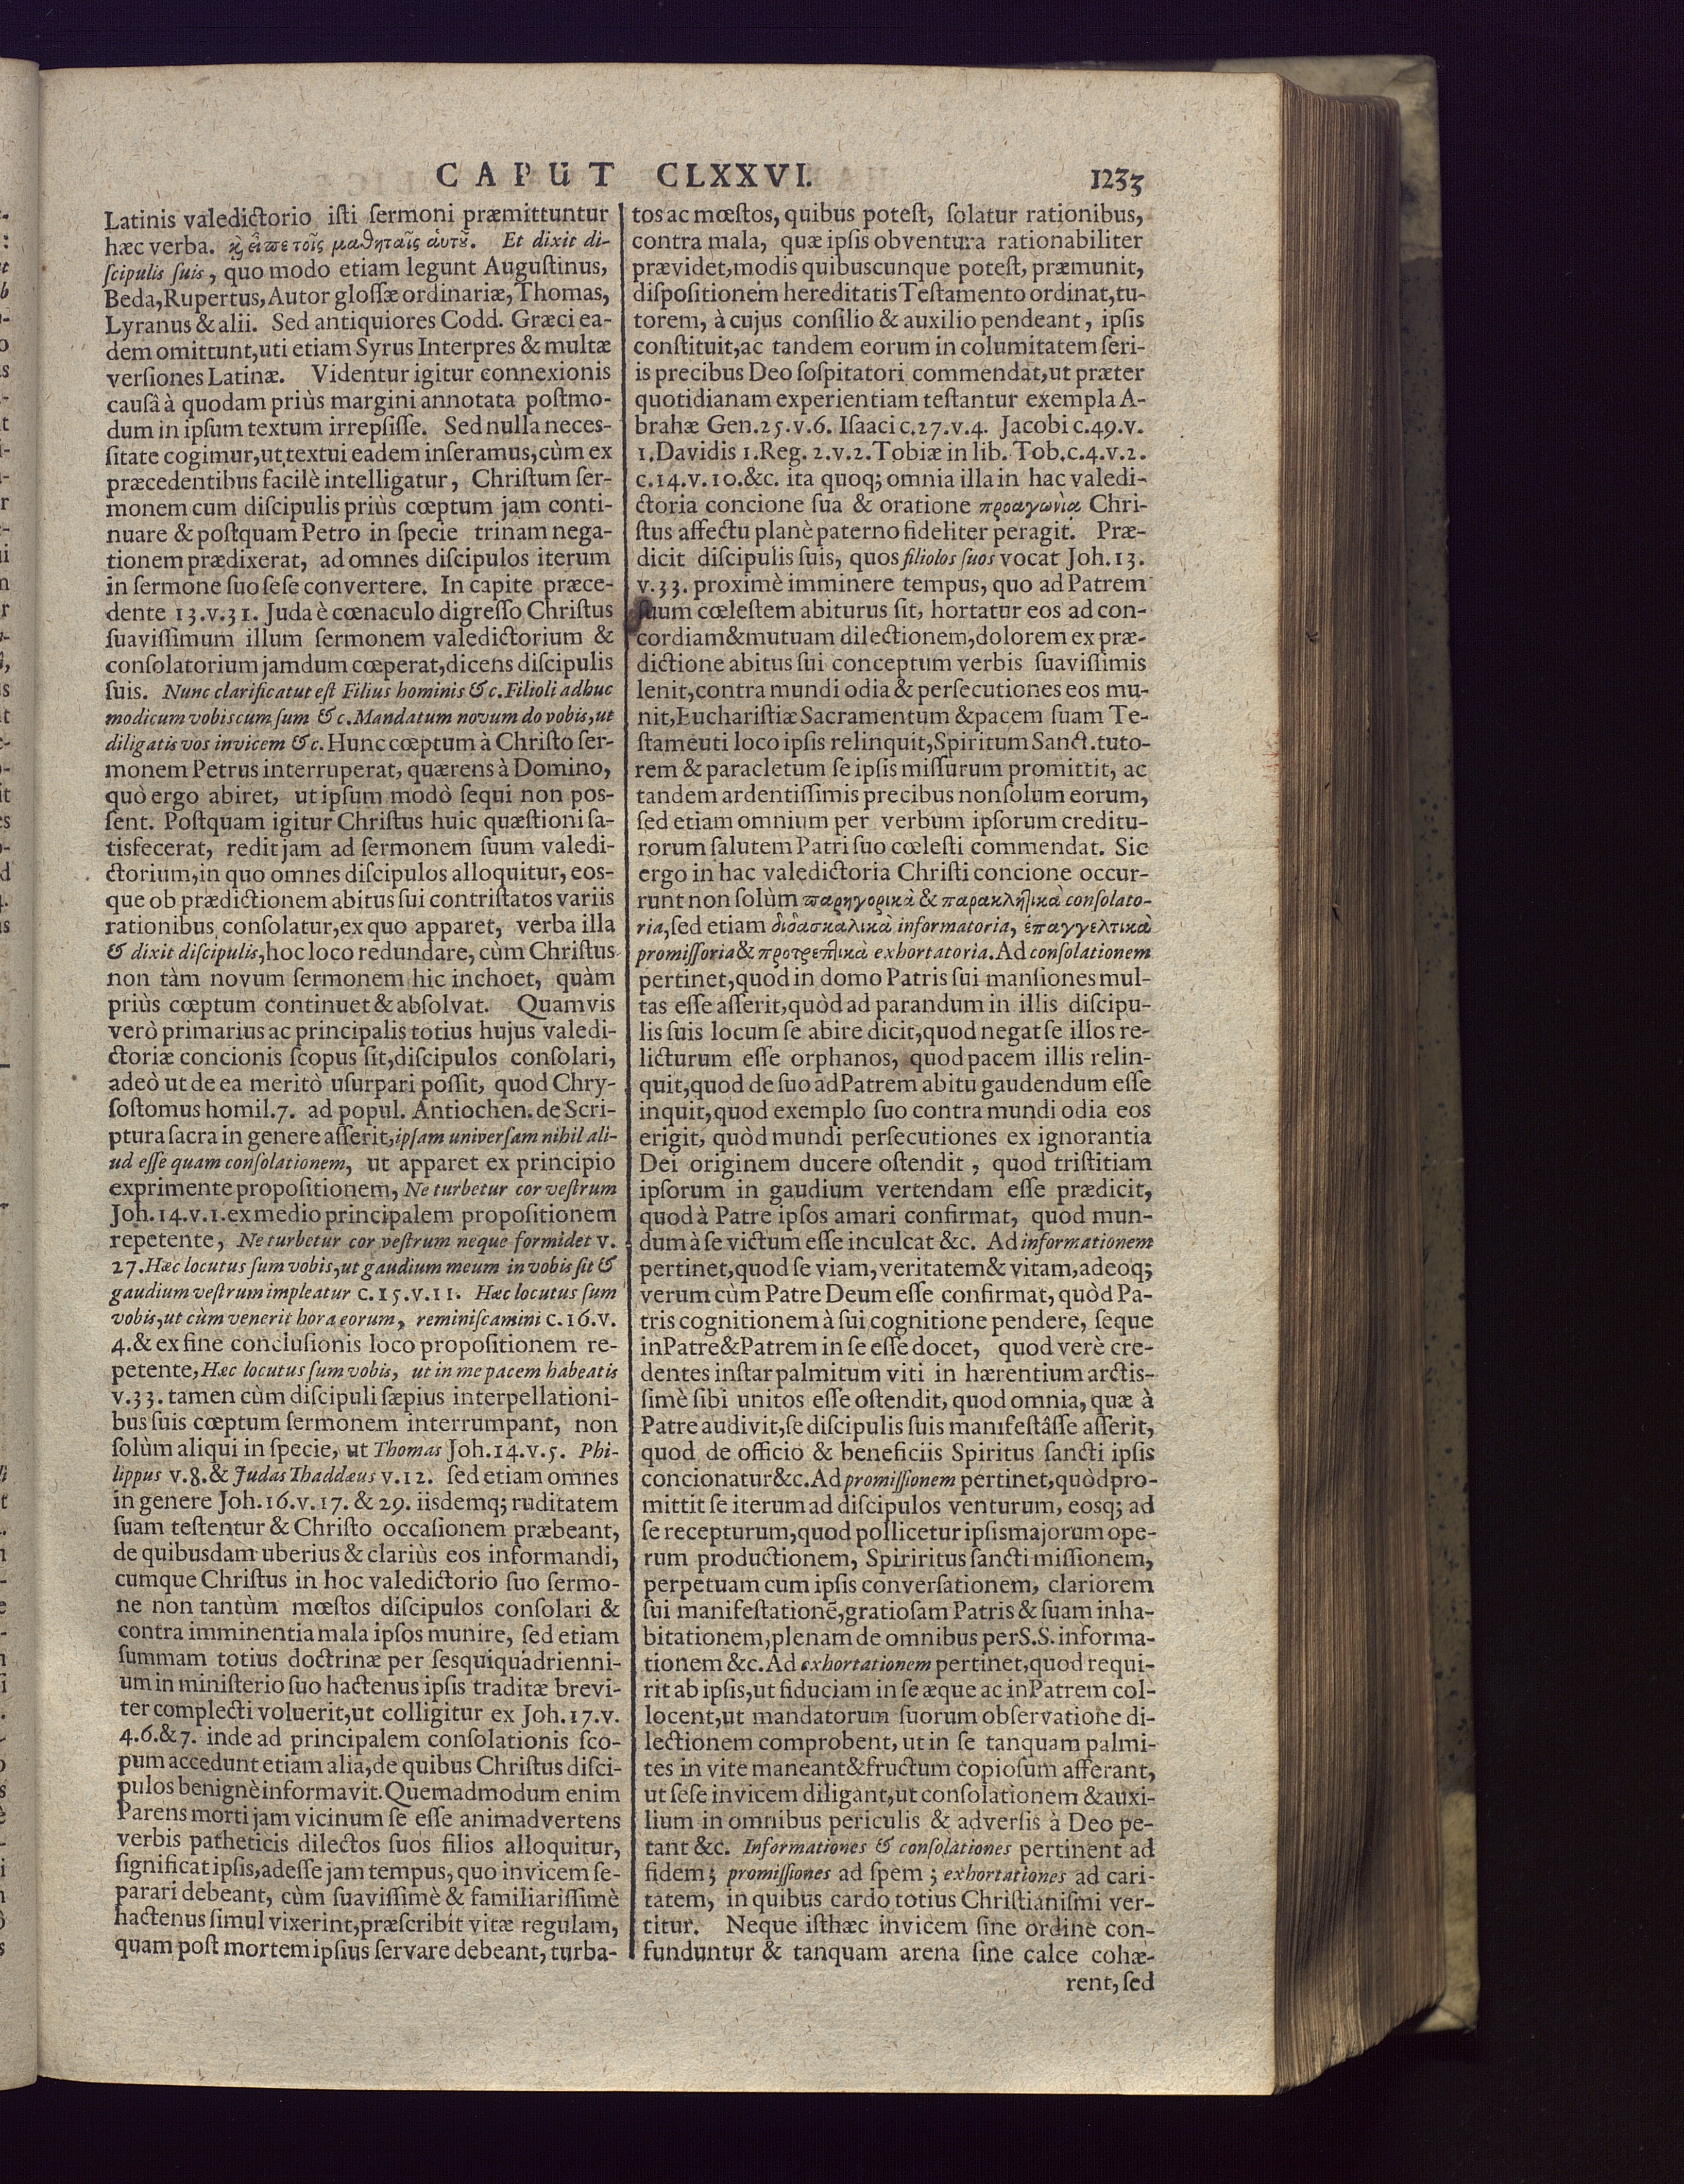 CAPUT CLXXVI. 1233
Latinis valedictorio isti sermoni præmittuntur
hæc verba. κỳ εἶπε τοῖς μαθηταῖς ἁυτȣ͂. Et dixit di-
scipulis suis, quo modo etiam legunt Augustinus,
Beda, Rupertus, Autor glossæ ordinariæ, Thomas,
Lyranus & alii. Sed antiquiores Codd. Græci ea-
dem omittunt, uti etiam Syrus Interpres & multæ
versiones Latinæ. Videntur igitur connexionis
causâ à quodam priùs margini annotata postmo-
dum in ipsum textum irrepsisse. Sed nulla neces-
sitate cogimur, ut textui eadem inseramus, cùm ex
præcedentibus facilè intelligatur, Christum ser-
monem cum discipulis priùs cœptum jam conti-
nuare & postquam Petro in specie trinam nega-
tionem prædixerat, ad omnes discipulos iterum
in sermone suo sese convertere. In capite præce-
dente 13. v. 31. Juda è cœnaculo digresso Christus
suavissimum illum sermonem valedictorium &
consolatorium jamdum cœperat, dicens discipulis
suis. Nunc clarificatut est Filius hominis &c. Filioli adhuc
modicum vobiscum sum &c. Mandatum novum do vobis, ut
diligatis vos invicem &c. Hunc cœptum à Christo ser-
monem Petrus interruperat, quærens à Domino,
quò ergo abiret, ut ipsum modò sequi non pos-
sent. Postquam igitur Christus huic quæstioni sa-
tisfecerat, redit jam ad sermonem suum valedi-
ctorium, in quo omnes discipulos alloquitur, eos-
que ob prædictionem abitus sui contristatos variis
rationibus consolatur, ex quo apparet, verba illa
& dixit discipulis, hoc loco redundare, cùm Christus
non tàm novum sermonem hic inchoet, quàm
priùs cœptum continuet & absolvat. Quamvis
verò primarius ac principalis totius hujus valedi-
ctoriæ concionis scopus sit, discipulos consolari,
adeò ut de ea meritò usurpari possit, quod Chry-
sostomus homil. 7. ad popul. Antiochen. de Scri-
ptura sacra in genere asserit, ipsam universam nihil ali-
ud esse quam consolationem, ut apparet ex principio
exprimente propositionem, Ne turbetur cor vestrum
Joh. 14. v. 1. ex medio principalem propositionem
repetente, Ne turbetur cor vestrum neque formidet v.
27. Hæc locutus sum vobis, ut gaudium meum in vobis sit &
gaudium vestrum impleatur c. 15. v. 11. Hæc locutus sum
vobis, ut cùm venerit hora eorum, reminiscamini c. 16. v.
4. & ex fine conclusionis loco propositionem re-
petente, Hæc locutus sum vobis, ut in me pacem habeatis
v. 33. tamen cùm discipuli sæpius interpellationi-
bus suis cœptum sermonem interrumpant, non
solùm aliqui in specie, ut Thomas Joh. 14. v. 5. Phi-
lippus v. 8. & Judas Thaddæus v. 12. sed etiam omnes
in genere Joh. 16. v. 17. & 29. iisdemq; ruditatem
suam testentur & Christo occasionem præbeant,
de quibusdam uberius & clariùs eos informandi,
cumque Christus in hoc valedictorio suo sermo-
ne non tantùm mœstos discipulos consolari &
contra imminentia mala ipsos munire, sed etiam
summam totius doctrinæ per sesquiquadrienni-
um in ministerio suo hactenus ipsis traditæ brevi-
ter complecti voluerit, ut colligitur ex Joh. 17. v.
4. 6. & 7. inde ad principalem consolationis sco-
pum accedunt etiam alia, de quibus Christus disci-
pulos benignè informavit. Quemadmodum enim
Parens morti jam vicinum se esse animadvertens
verbis patheticis dilectos suos filios alloquitur,
significat ipsis, adesse jam tempus, quo invicem se-
parari debeant, cùm suavissimè & familiarissimè
hactenus simul vixerint, præscribit vitæ regulam,
quam post mortem ipsius servare debeant, turba-
tos ac mœstos, quibus potest, solatur rationibus,
contra mala, quæ ipsis obventura rationabiliter
prævidet, modis quibuscunque potest, præmunit,
dispositionem hereditatis Testamento ordinat, tu-
torem, à cujus consilio & auxilio pendeant, ipsis
constituit, ac tandem eorum in columitatem seri-
is precibus Deo sospitatori commendat, ut præter
quotidianam experientiam testantur exempla A-
brahæ Gen. 25. v. 6. Isaaci c. 27. v. 4. Jacobi c. 49. v.
1. Davidis 1. Reg. 2. v. 2. Tobiæ in lib. Tob. c. 4. v. 2.
c. 14. v. 10. &c. ita quoq; omnia illa in hac valedi-
ctoria concione sua & oratione προαγωνίᾳ Chri-
stus affectu planè paterno fideliter peragit. Præ-
dicit discipulis suis, quos filiolos suos vocat Joh. 13.
v. 33. proximè imminere tempus, quo ad Patrem
suum cœlestem abiturus sit, hortatur eos ad con-
cordiam & mutuam dilectionem, dolorem ex præ-
dictione abitus sui conceptum verbis suavissimis
lenit, contra mundi odia & persecutiones eos mu-
nit, Eucharistiæ Sacramentum & pacem suam Te-
stameuti loco ipsis relinquit, Spiritum Sanct. tuto-
rem & paracletum se ipsis missurum promittit, ac
tandem ardentissimis precibus non solum eorum,
sed etiam omnium per verbum ipsorum creditu-
rorum salutem Patri suo cœlesti commendat. Sic
ergo in hac valedictoria Christi concione occur-
runt non solùm παρηγορικὰ & παρακλητικὰ consolato-
ria, sed etiam διδασκαλικὰ informatoria, ἐπαγγελτικὰ
promissoria & προτρεπτικὰ exhortatoria. Ad consolationem
pertinet, quod in domo Patris sui mansiones mul-
tas esse asserit, quòd ad parandum in illis discipu-
lis suis locum se abire dicit, quod negat se illos re-
licturum esse orphanos, quod pacem illis relin-
quit, quod de suo ad Patrem abitu gaudendum esse
inquit, quod exemplo suo contra mundi odia eos
erigit, quòd mundi persecutiones ex ignorantia
Dei originem ducere ostendit, quod tristitiam
ipsorum in gaudium vertendam esse prædicit,
quod à Patre ipsos amari confirmat, quod mun-
dum à se victum esse inculcat &c. Ad informationem
pertinet, quod se viam, veritatem & vitam, adeoq;
verum cùm Patre Deum esse confirmat, quòd Pa-
tris cognitionem à sui cognitione pendere, seque
in Patre & Patrem in se esse docet, quod verè cre-
dentes instar palmitum viti in hærentium arctis-
simè sibi unitos esse ostendit, quod omnia, quæ à
Patre audivit, se discipulis suis manifestâsse asserit,
quod de officio & beneficiis Spiritus sancti ipsis
concionatur &c. Ad promissionem pertinet, quòd pro-
mittit se iterum ad discipulos venturum, eosq; ad
se recepturum, quod pollicetur ipsis majorum ope-
rum productionem, Spiriritus sancti missionem,
perpetuam cum ipsis conversationem, clariorem
sui manifestationẽ, gratiosam Patris & suam inha-
bitationem, plenam de omnibus per S. S. informa-
tionem &c. Ad exhortationem pertinet, quod requi-
rit ab ipsis, ut fiduciam in se æque ac in Patrem col-
locent, ut mandatorum suorum observatione di-
lectionem comprobent, ut in se tanquam palmi-
tes in vite maneant & fructum copiosum afferant,
ut sese invicem diligant, ut consolationem & auxi-
lium in omnibus periculis & adversis à Deo pe-
tant &c. Informationes & consolationes pertinent ad
fidem; promissiones ad spem; exhortationes ad cari-
tatem, in quibus cardo totius Christianismi ver-
titur. Neque isthæc invicem sine ordine con-
funduntur & tanquam arena sine calce cohæ-
rent, sed